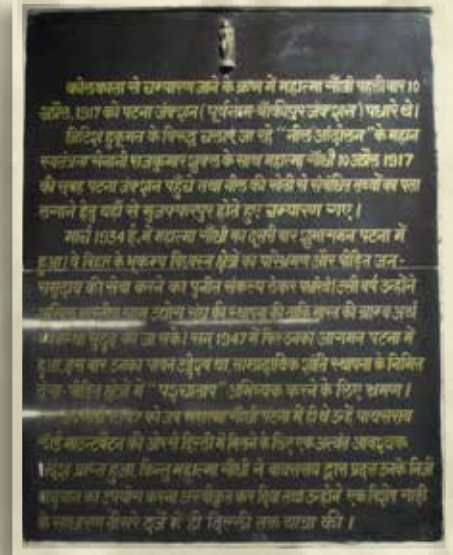 कोलकाता से चम्पारण जाने के क्रम में महात्मा गाँधी पहली बार 10
अप्रैल, 1917 को पटना जंक्शन (पूर्वनाम बाँकीपुर जंक्शन) पधारे थे।
ब्रिटिश हुकूमत के विरुद्ध चलाए जा रहे "नील आंदोलन" के महान
स्वतंत्रता सेनानी राजकुमार शुक्ल के साथ महात्मा गाँधी 10 अप्रैल 1917
की सुबह पटना जंक्शन पहुँचे तथा नील की खेती से संबंधित तथ्यों का पता
लगाने हेतु यहीं से मुजफ्फरपुर होते हुए चम्पारण गए।
मार्च 1934 ई. में महात्मा गाँधी का दूसरी बार शुभागमन पटना में
हुआ। वे बिहार के भूकम्प क्षेत्रों का परिभ्रमण और पीड़ित जन-
समुदाय की सेवा करने का पुनीत संकल्प लेकर पधारे। उसी वर्ष उन्होंने
उद्योग संघ की स्थापना की ताकि भारत की ग्राम्य अर्थ
सुदृढ़ की जा सके। सन् 1947 में फिर उनका आगमन पटना में
हुआ, इस बार उनका पावन उद्देश्य था साम्प्रदायिक शांति स्थापना के निमित्त
पीड़ित क्षेत्रों में "पश्चाताप" अभिव्यक्त करने के लिए भ्रमण।
1947 को जब महात्मा गाँधी पटना में ही थे उन्हें वायसराय
माउन्टबेटन की ओर से दिल्ली में मिलने के लिए एक अत्यंत आवश्यक
संदेश प्राप्त हुआ, किन्तु महात्मा गाँधी ने वायसराय द्वारा प्रदत्त उनके निजी
वायुयान का उपयोग करना अस्वीकृत कर दिया तथा उन्होंने एक विशेष गाड़ी
के साधारण तीसरे दर्जे में ही दिल्ली तक यात्रा की।